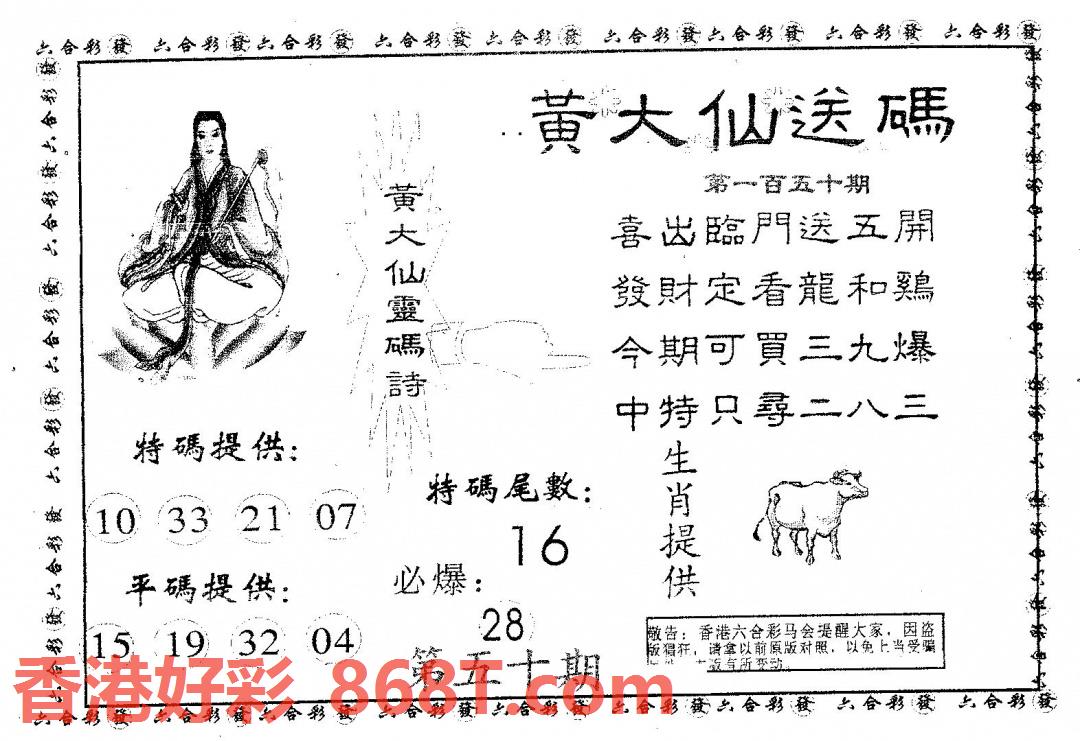 六合彩發 六合彩發六合彩發 六合彩發六合彩發 六合彩發六合彩發 六合彩發 六合彩發
黃大仙送碼
第一百五十期
喜出臨門送五開
發財定看龍和鷄
今期可買三九爆
中特只尋二八三
黃大仙靈碼詩
特碼提供：
10 33 21 07
平碼提供：
15 19 32 04
特碼尾數：
16
必爆：
28
第五十期
生肖提供
敬告：香港六合彩马会提醒大家，因盗
版猖狂，请拿以前原版对照，以免上当受骗
版有所变动
香港好彩 868T.com
六合彩發 六合彩發六合彩發 六合彩發六合彩發 六合彩發六合彩發 六合彩發 六合彩發